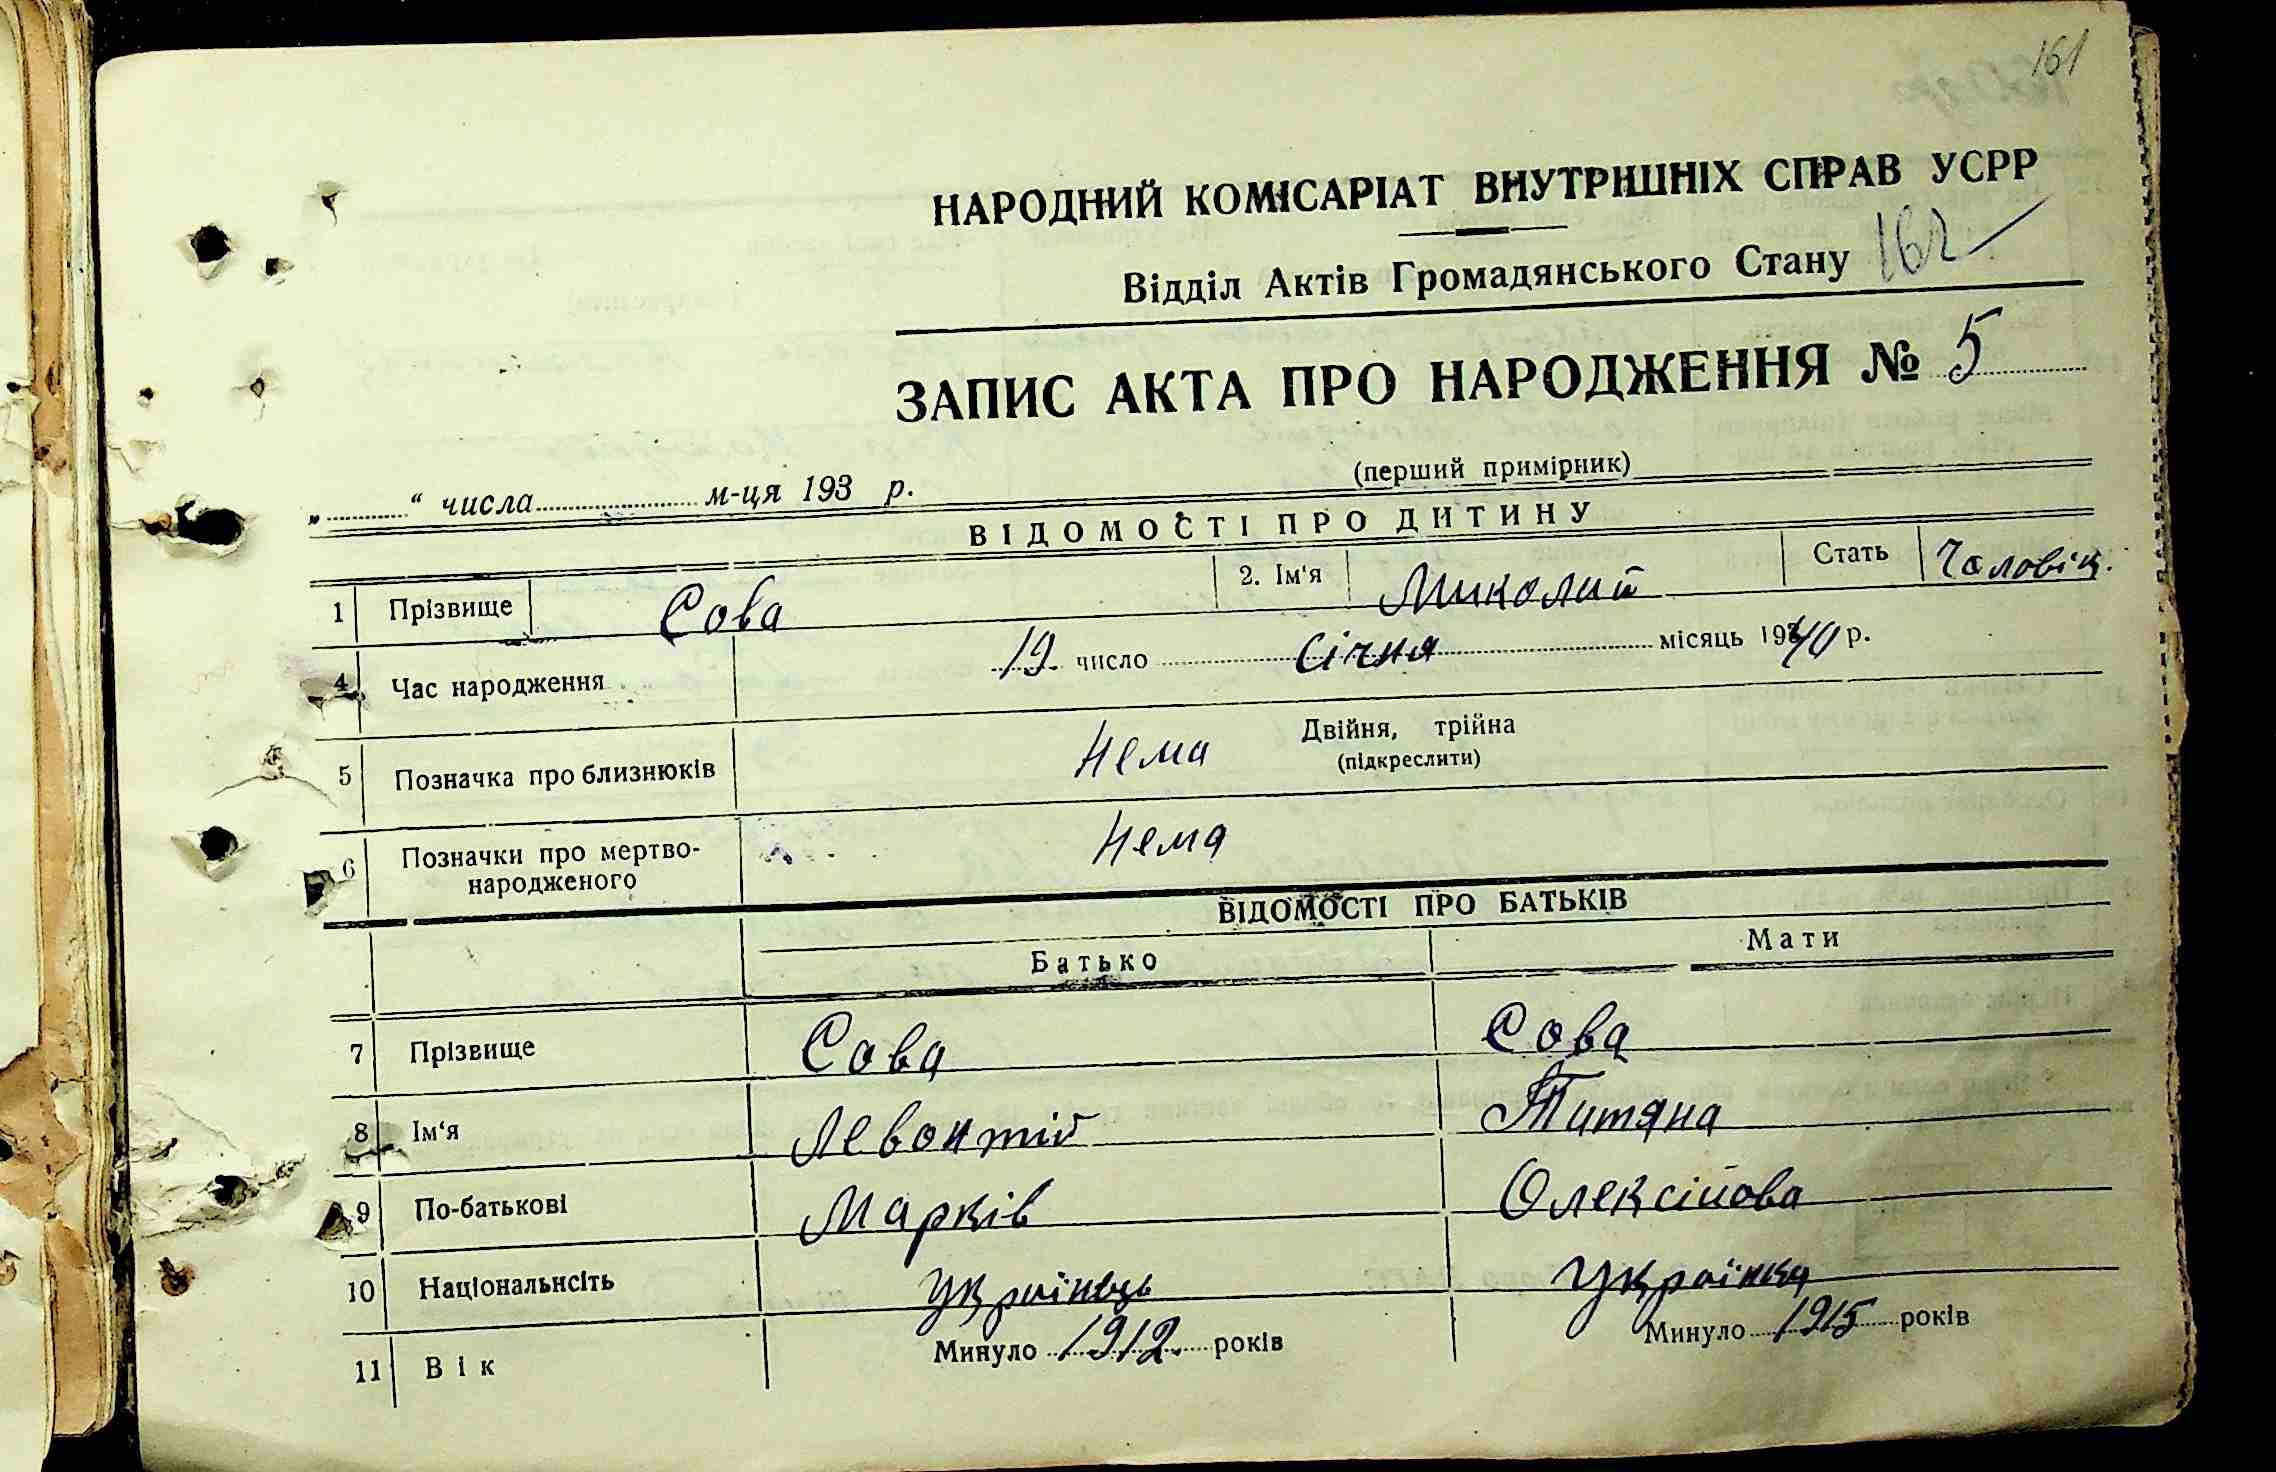 161
НАРОДНИЙ КОМІСАРІАТ ВНУТРІШНІХ СПРАВ УСРР
Відділ Актів Громадянського Стану 162
ЗАПИС АКТА ПРО НАРОДЖЕННЯ № 5
(перший примірник)
„ “ числа м-ця 193 р.
ВІДОМОСТІ ПРО ДИТИНУ
1 Прізвище Сова 2. Ім'я Миколий Стать Чоловіч.
4 Час народження 19 число Січня місяць 1940 р.
5 Позначка про близнюків Нема Двійня, трійна
(підкреслити)
6 Позначки про мертво-
народженого Нема
ВІДОМОСТІ ПРО БАТЬКІВ
Батько Мати
7 Прізвище Сова Сова
8 Ім'я Левонтій Титяна
9 По-батькові Марків Олексійова
10 Національнсіть Українець Українка
11 Вік Минуло 1912 років Минуло 1915 років